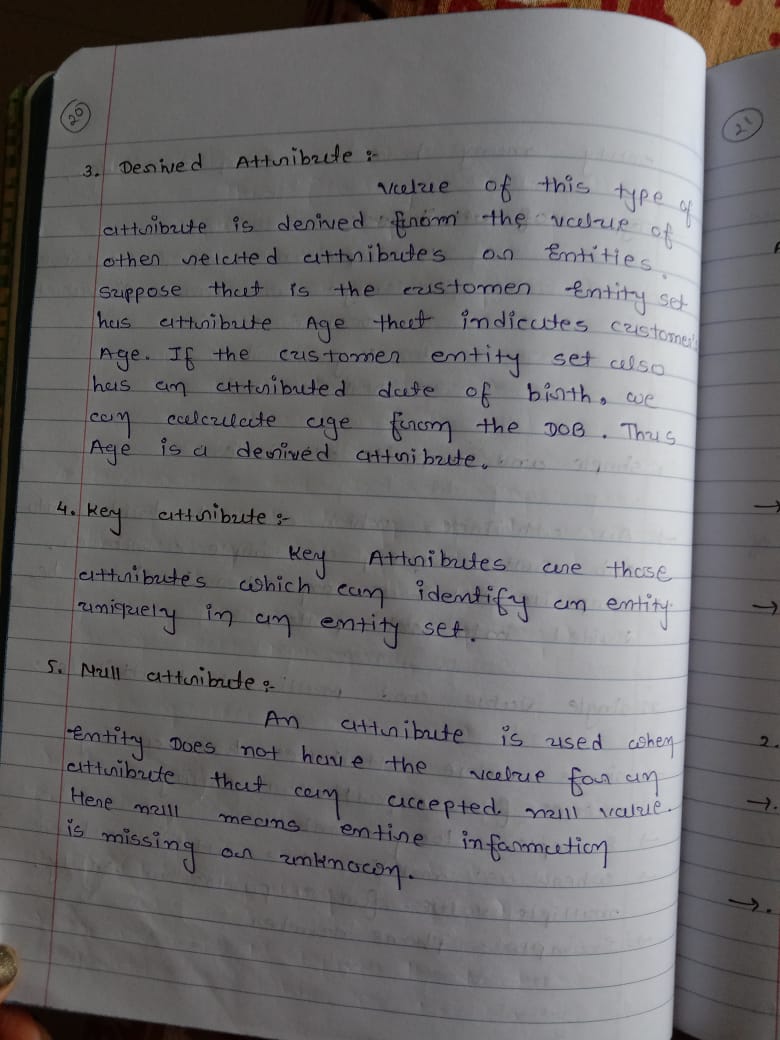 20
21
3. Derived Attribute :-
value of this type of
attribute is derived from the value of
other related attributes or Entities.
Suppose that is the customer Entity set
has attribute Age that indicates customer's
Age. If the customer entity set also
has an attributed date of birth, we
can calculate age from the DOB. Thus
Age is a derived attribute.
4. Key attribute :-
Key Attributes are those
attributes which can identify an entity
uniquely in an entity set.
5. Null attribute :-
An attribute is used when
Entity Does not have the value for an
attribute that can accepted null value.
Here null means entire information
is missing or unknown.
2.